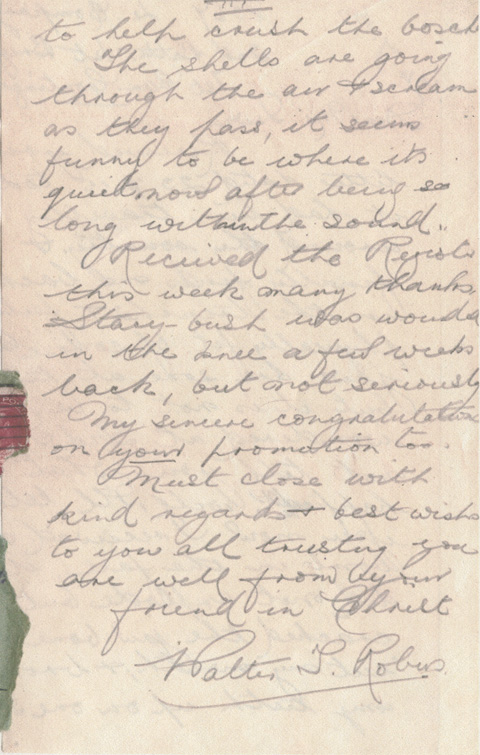 III
to help crush the bosch
The shells are going
through the air & scream
as they pass, it seems
funny to be where its
quiet now after being so
long within the sound.
Received the
this week many thanks.
Stacy-bush was wounde
in the knee a few weeks
back, but not seriously
My sincere congratulation
on your promotion too.
Must close with
kind regards & best wishe
to you all trusting you
are well from your
friend in Christ
Walter